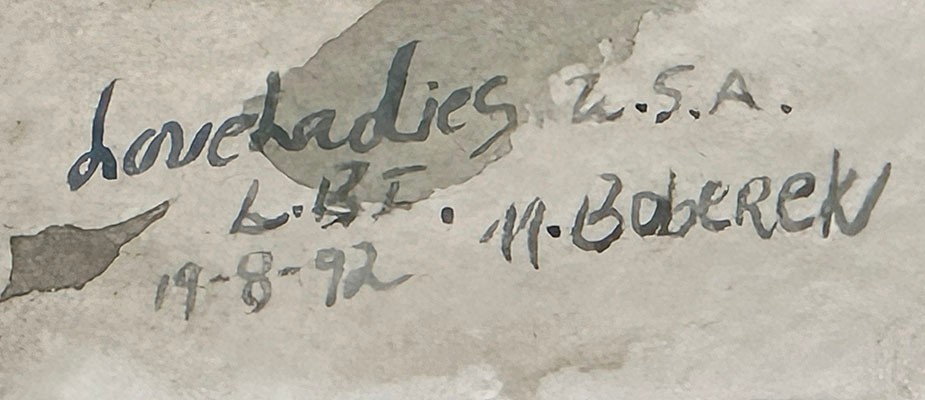 LoveLadies U.S.A.
L.B.I.
M. Boberek
19-8-92